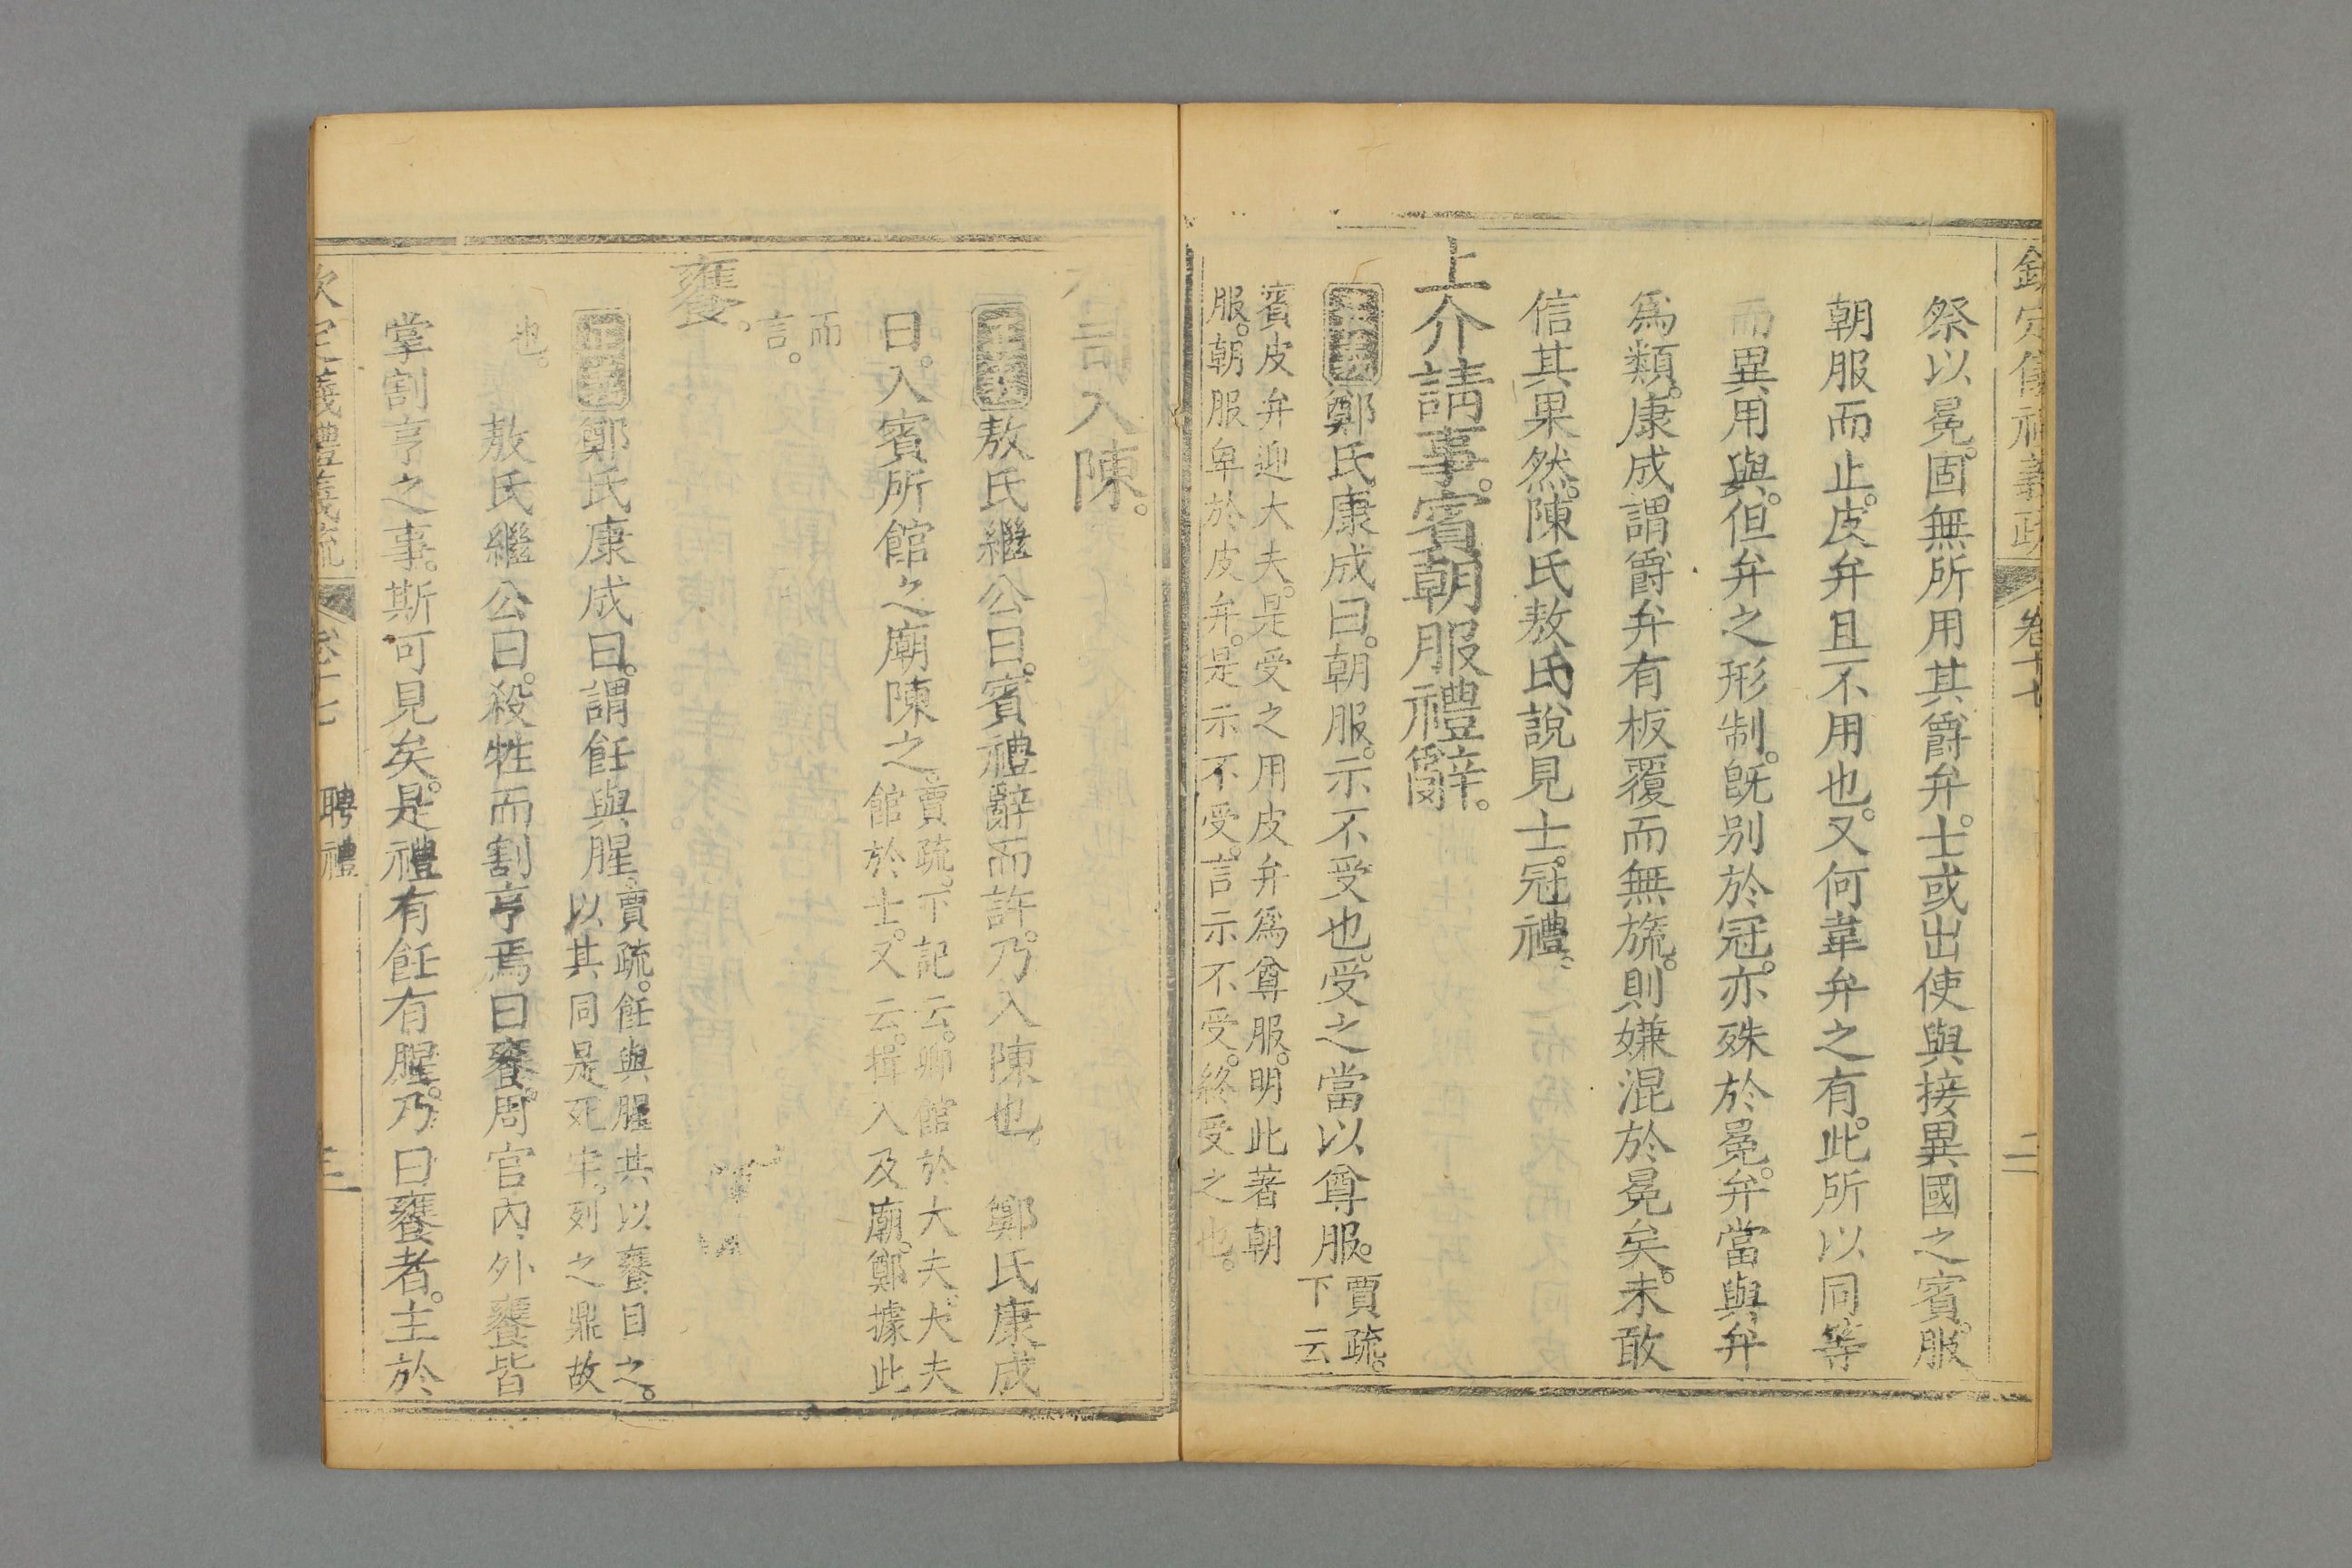 欽定儀禮義疏 卷十七 二
祭以冕。固無所用其爵弁。士或出使與接異國之賓。服
朝服而止。皮弁且不用也。又何韋弁之有。此所以同等
而異用與。但弁之形制。旣别於冠。亦殊於冕。弁當與弁
爲類。康成謂爵弁有板覆而無旒。則嫌混於冕矣。未敢
信其果然。陳氏敖氏說見士冠禮
上介請事。賓朝服禮辭。
正義鄭氏康成曰。朝服。示不受也。受之當以尊服。賈疏。
下云
賓皮弁迎大夫。是受之用皮弁爲尊服。明此著朝
服。朝服卑於皮弁。是示不受。言示不受。終受之也。
有司入陳。
正義敖氏繼公曰。賓禮辭而許。乃入陳也。 鄭氏康成
曰。入賓所館之廟陳之。賈疏。下記云。卿館於大夫。大夫
館於士。又云。揖入及廟。鄭據此
而
言。
饔。
正義鄭氏康成曰。謂飪與腥。賈疏。飪與腥共以饔目之。
以其同是死牢。列之鼎故
也。
敖氏繼公曰。殺牲而割亨焉曰饔。周官內外饔皆
掌割亨之事。斯可見矣。是禮有飪有腥。乃曰饔者。主於
欽定儀禮義疏 卷十七 聘禮 三